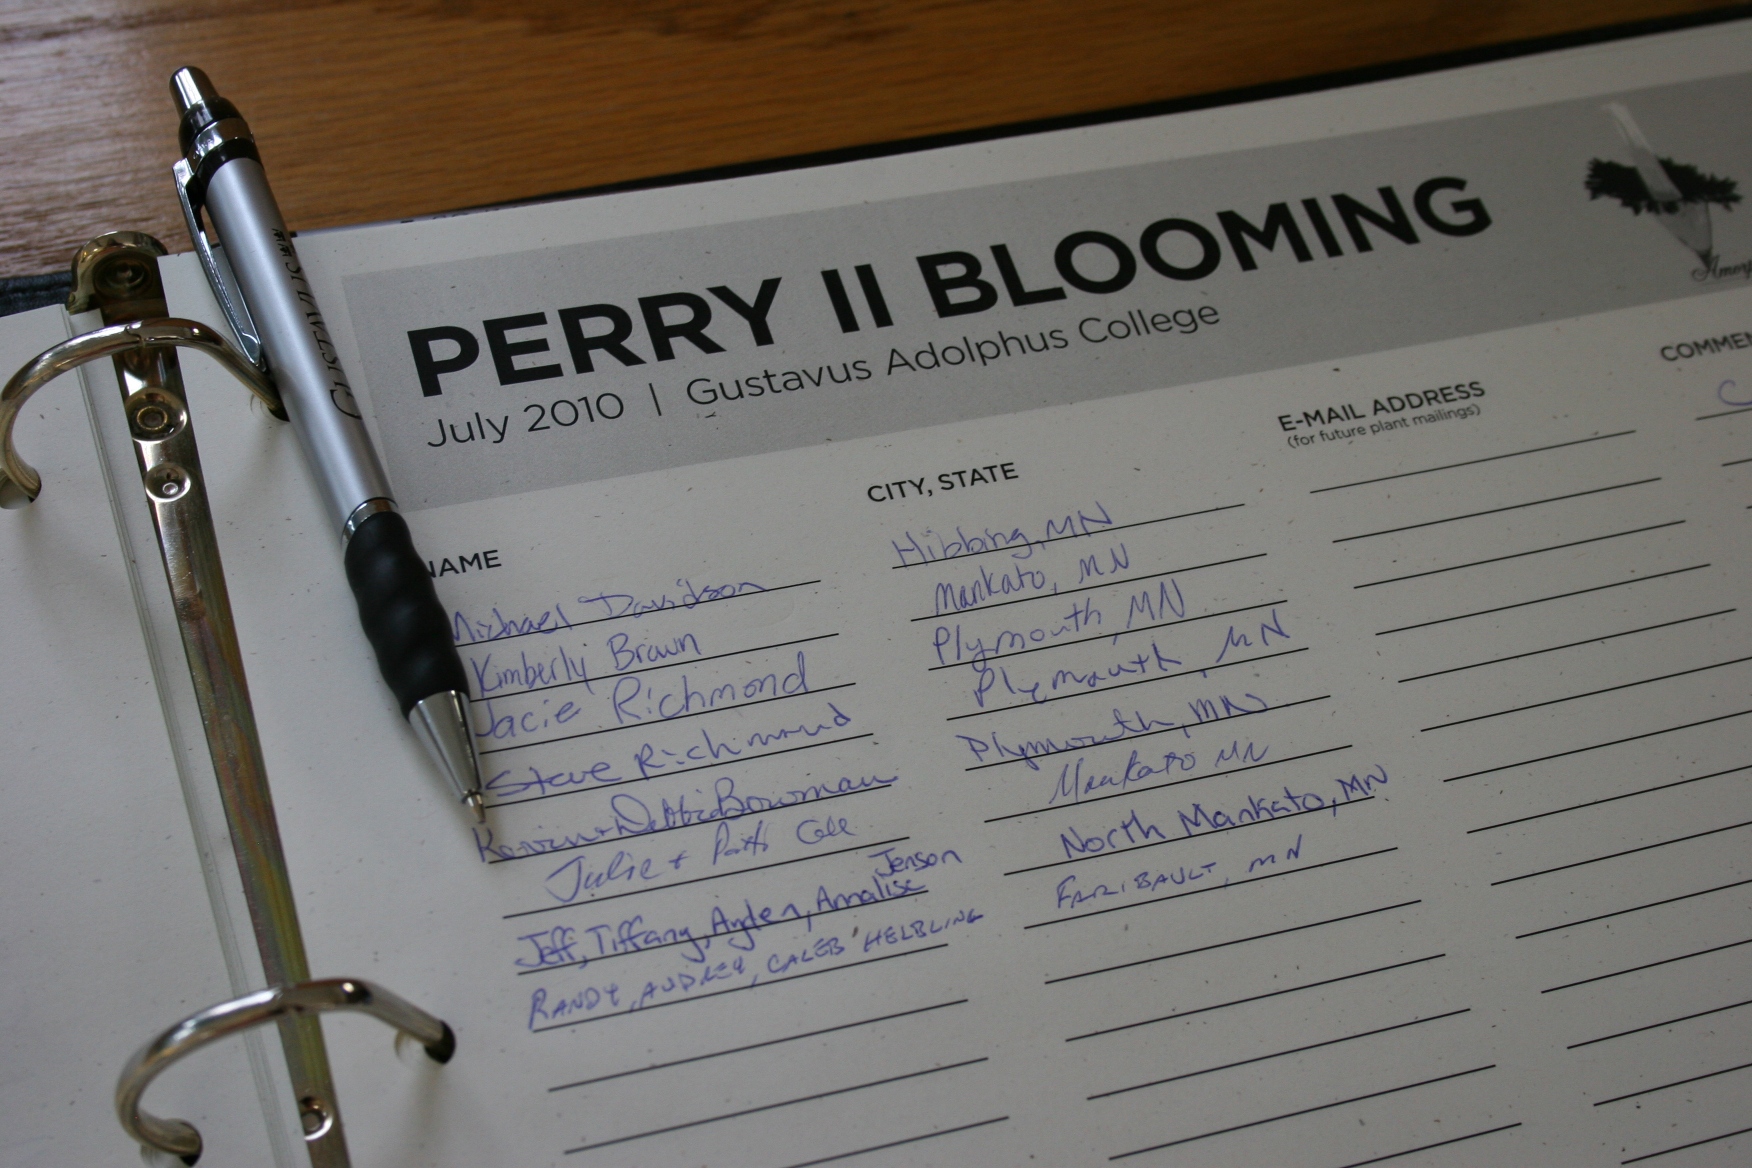 PERRY II BLOOMING
July 2010 | Gustavus Adolphus College
GUSTAVUS
NAME CITY, STATE E-MAIL ADDRESS COMMEN
(for future plant mailings)
Michael Davidson Hibbing, MN
Kimberly Brown Mankato, MN
Jacie Richmond Plymouth, MN
Steve Richmond Plymouth, MN
Kevin + Debbie Bowman Plymouth, MN
Julie + Mankato MN
Jenson
Jeff, Tiffany, Ayden, Annalise North Mankato, MN
RANDY, AUDREY, CALEB HELBLING FARIBAULT, MN